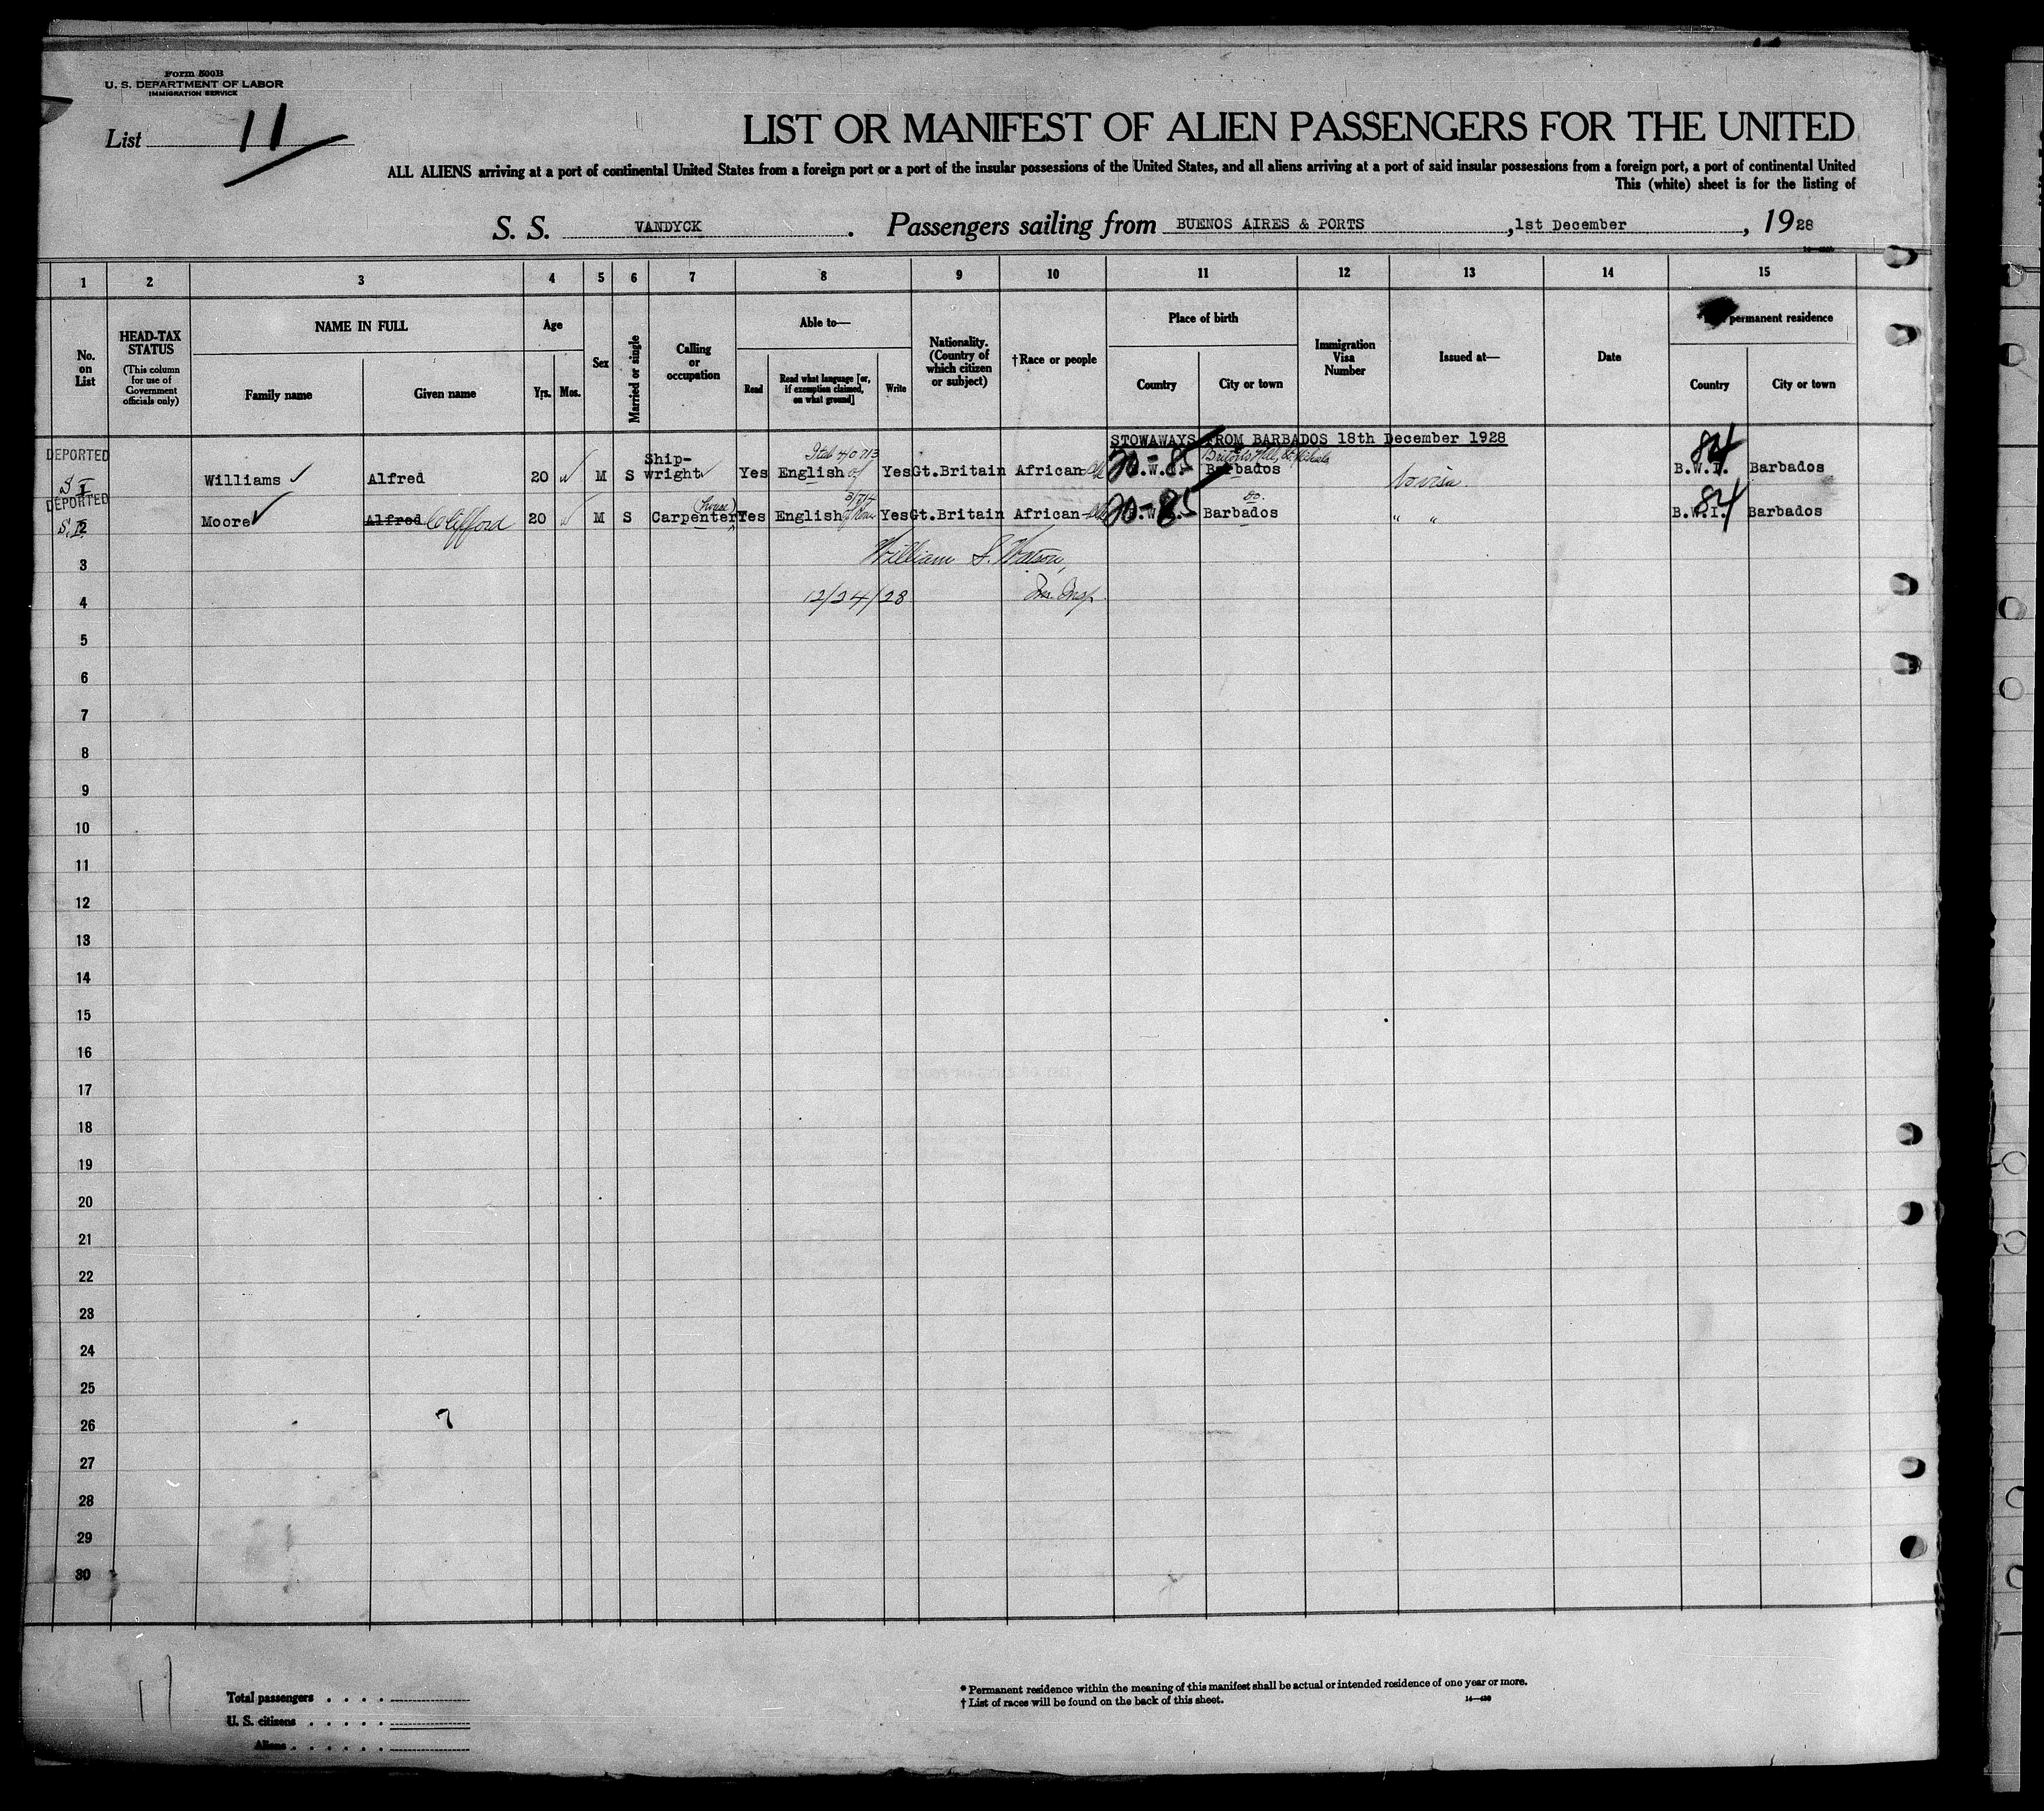 Form 500B
U. S. DEPARTMENT OF LABOR
IMMIGRATION SERVICE
List 11
LIST OR MANIFEST OF ALIEN PASSENGERS FOR THE UNITED
ALL ALIENS arriving at a port of continental United States from a foreign port or a port of the insular possessions of the United States, and all aliens arriving at a port of said insular possessions from a foreign port, a port of continental United
This (white) sheet is for the listing of
S. S. VANDYCK. Passengers sailing from BUENOS AIRES & PORTS, 1st December, 1928
1 2 3 4 5 6 7 8 9 10 11 12 13 14 15
No. on List
HEAD-TAX STATUS
(This column for use of Government officials only)
NAME IN FULL
Family name Given name
Age
Yrs. Mos.
Sex
Married or single
Calling or occupation
Able to—
Read
Read what language [or, if exemption claimed, on what ground]
Write
Nationality. (Country of which citizen or subject)
†Race or people
Place of birth
Country City or town
Immigration Visa Number
Issued at—
Date
permanent residence
Country City or town
STOWAWAYS FROM BARBADOS 18th December 1928
DEPORTED
S I Williams Alfred 20 M S Ship-wright Yes English Yes Gt.Britain African 20-85 Barbados no visa. 84 B.W.I. Barbados
DEPORTED
S.I. 2 Moore Alfred Clifford 20 M S Carpenter (house) Yes English Yes Gt.Britain African 20-85 do. Barbados " " 84 B.W.I. Barbados
3 William S. Watson,
4 12/24/28 Im. Insp.
5
6
7
8
9
10
11
12
13
14
15
16
17
18
19
20
21
22
23
24
25
26
27
28
29
30
7
11
Total passengers . . . .
U. S. citizens . . . . .
Aliens . . . . . .
* Permanent residence within the meaning of this manifest shall be actual or intended residence of one year or more.
† List of races will be found on the back of this sheet.